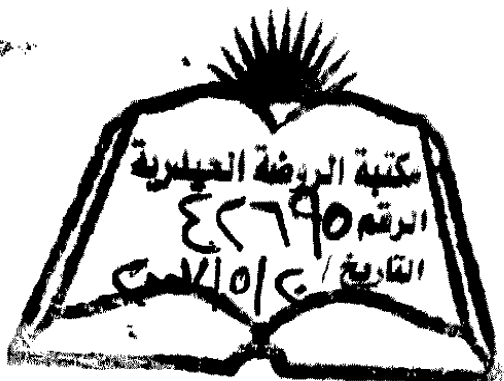 مكتبة الروضة الحيدرية
الرقم ٤٢٦٩٥
التاريخ /